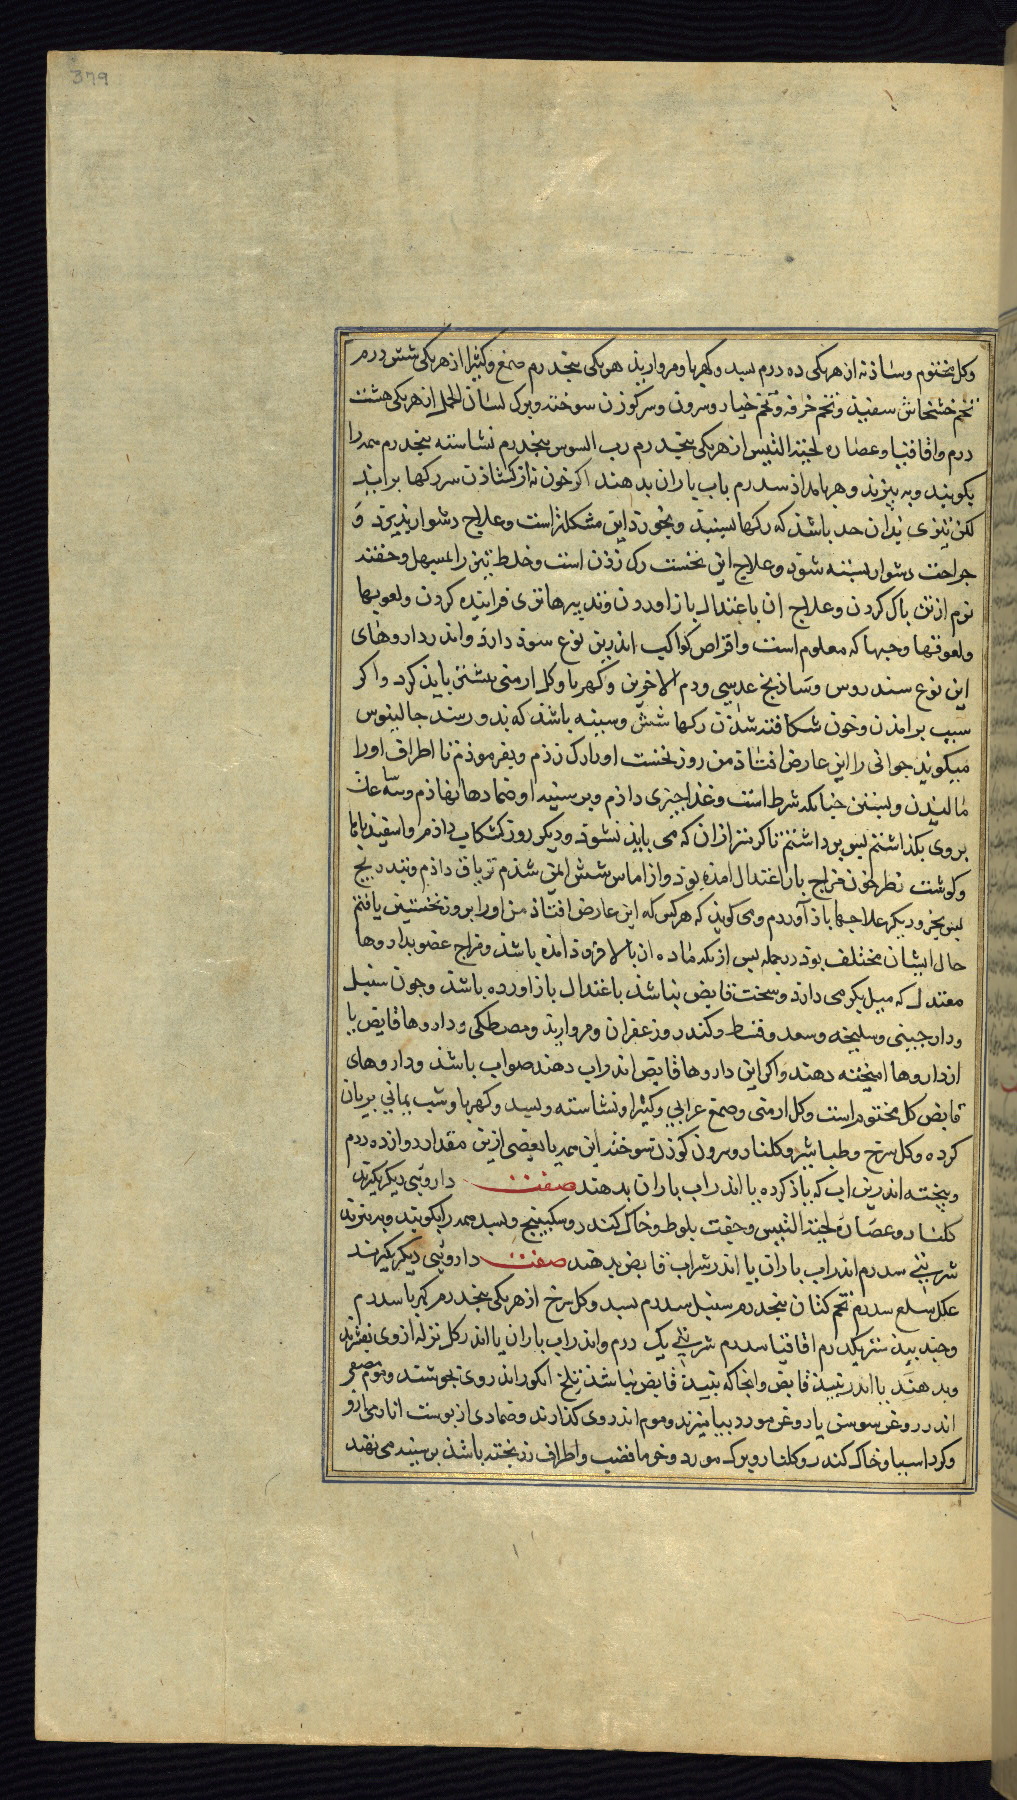 379
وکل مختوم وساذنه ازهریکی ده درم بسد وکهربا ومروارید هریکی پنجدرم صمغ وکثیرا ازهریکی شش درم
تخم خشخاش سفید وتخم خرفه وتخم خیار وسرون وسرکوزن سوخته وبرک لسان الحمل ازهریکی هشت
درم واقاقیا وعصاره لحیة التیس ازهریکی پنجدرم رب السوس پنجدرم نشاسته پنجدرم همه را
بکوبند وبه بیزند وهر بامداد سدرم باب باران بدهند اکر خون نه از کشاذن سررکها براید
لکن تیزی بدان حد باشد که رکها وبخورد این مشکلتر است وعلاج دشوار پذیرد و
جراحت دشوار بسته شود وعلاج این نخست رک زدن است وخلط تیز را بمسهل وحقنه
نرم ازتن پاک کردن وعلاج ان باعتدال بازاوردن وتدبیرهاتری فزاینده کردن ولعوبها
ولعوقها وحبها که معلومست واقراص کواکب اندرین نوع سود دارد واندر داروهای
این نوع سندروس وساذنج عدسی ودم الاخوین وکهربا وکل ارمنی بیشتر باید کرد واکر
سبب برامدن وخون شکافته شدن رکها شش وسینه باشد که بدو رسد جالینوس
میکوید جوانی را این عارض افتاد من روز نخست اورا رک زدم وبفرموذم تا اطراف اورا
مالیدن وبستن چنانکه شرط است وغذا چیزی دادم وبرسینه او ضمادها نهاذم وسه ساعت
بروی بکذاشتم پس برداشتم تا کرمتر ازان که می باید نشود ودیکر روز کشکاب دادم واسفیدباها
وکوشت بط چون مزاج باز اعتدال امذه بوذ واز اماس شش ایمن شذم تریاق داذم وبتدریج
علاجها باز آوردم ومی کوید که هرکس که این عارض افتاد من اورا بروز نخستین یافتم
حال ایشان مختلف بود درجمله پس ازبکه ماده ان بالا فرود امذه باشد ومزاج عضو بداروها
معتدل که میل بکرمی دارد وسخت قابض نباشد باعتدال بازاورده باشذ وچون سنبل
ودارچینی وسلیخه وسعد وقسط وکندر وزعفران ومروارید ومصطکی وداروها قابض با
ازداروها امیخته دهند واکر این داروها قابض اندراب دهند صواب باشذ وداروهای
قابض کل مختومراست وکل ارمنی وصمغ عرابی وکثیرا ونشاسته وبسد وکهربا وشب یمانی بریان
کرده وکل سرخ وطباشیر وکلنار وسرون کوزن سوخته این همه یا بعضی ازین مقدار دوازده درم
وپخته اندرین اب که یاذ کرده یا اندراب باران بدهند صفت داروئی دیکر بکیرند
کلنار وعصاره لحیة التیس وجفت بلوط وخاک کندر وسکبینج وبسد همه را بکوبند وبه بیزند
شربتی سدرم اندراب باران یا اندرشراب قابض بدهند صفت داروئی دیکر کیرند
علک سلع سدرم تخم کتان پنجدرم سنبل سدرم بسد وکل سرخ ازهریکی پنجدرم کهربا سدرم
وجند بیدستر یکدرم اقاقیا سدرم شربتی یک درم واندراب باران یا اندر کل تر که ازوی بفشرند
وبدهند یا اندر نبیذ قابض وانجا که نبیذ قابض نباشد تلخ انکور اندروی بجوشند وموم مصفی
اندر روغن سوسن یا روغن مورد بیامیزند وموم اندروی کذارند وضمادی از پوست انار ومازو
وکرد اسیا وخاک کندر وکلنار وبرک مورد وخرما قضب واطراف رز پخته باشد برسینه می نهند